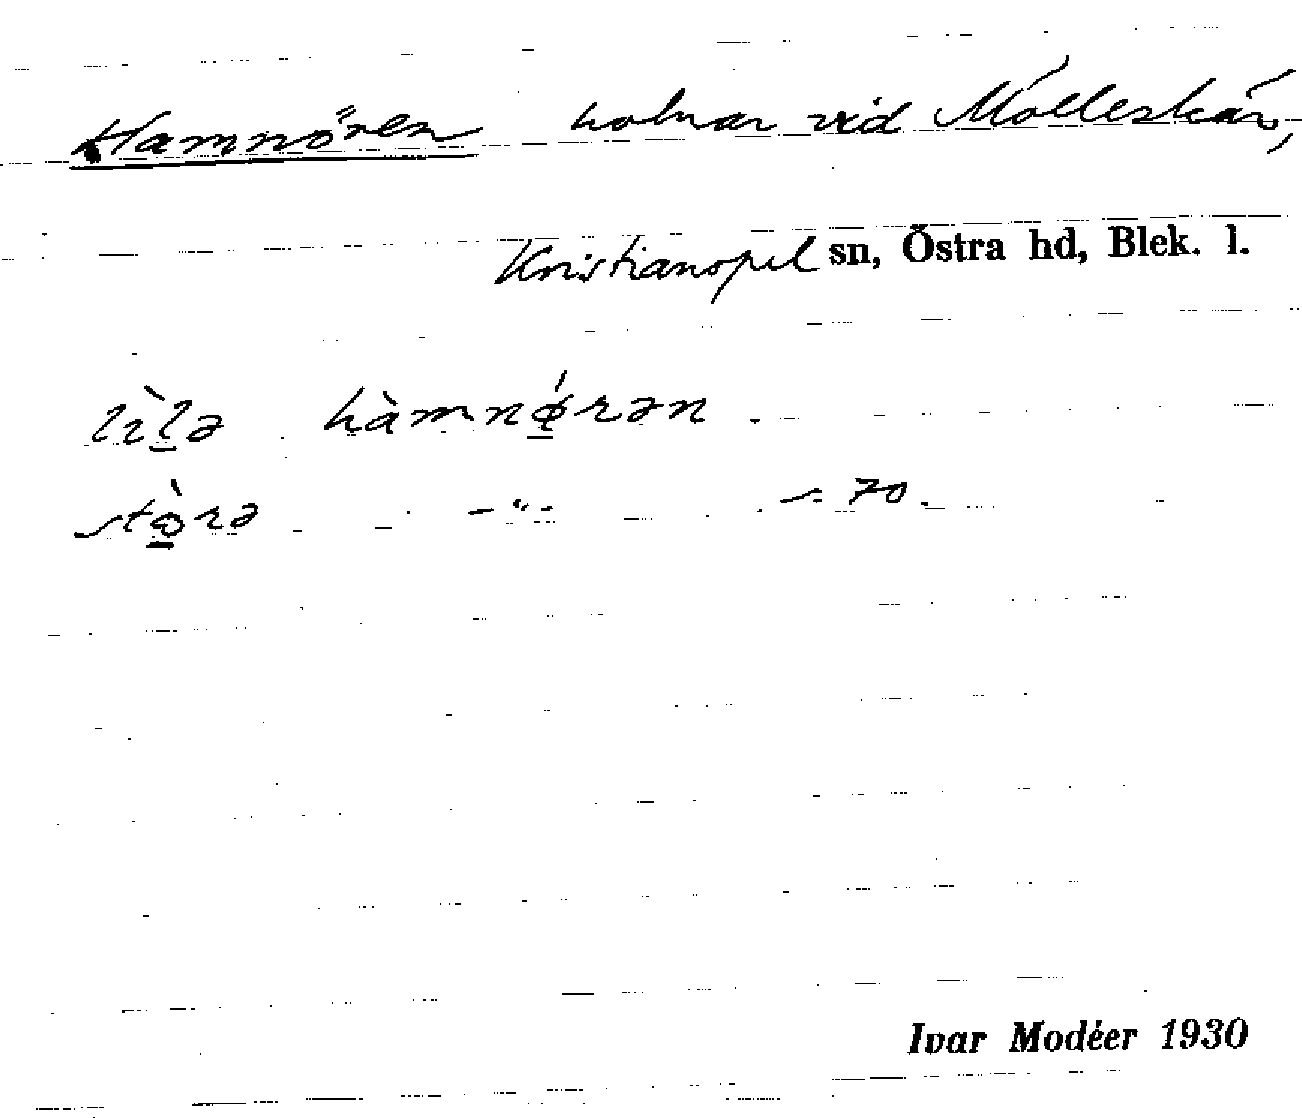 Hamnören holmar vid Mölleskär,
Kristianopel sn, Östra hd, Blek. l.
lìl̠ə hàmnǿ̠rən.
stò̠rə -"- 70.
Ivar Modéer 1930